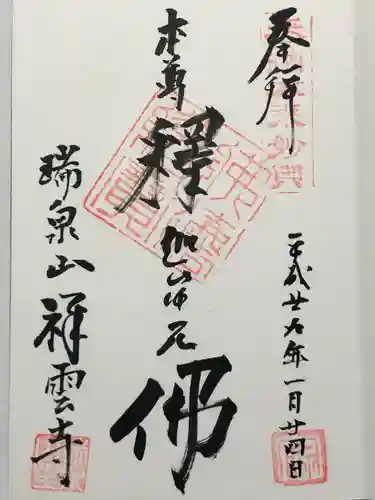 奉拝
平成廿九年一月廿四日
本尊
釋迦牟尼佛
瑞泉山祥雲寺